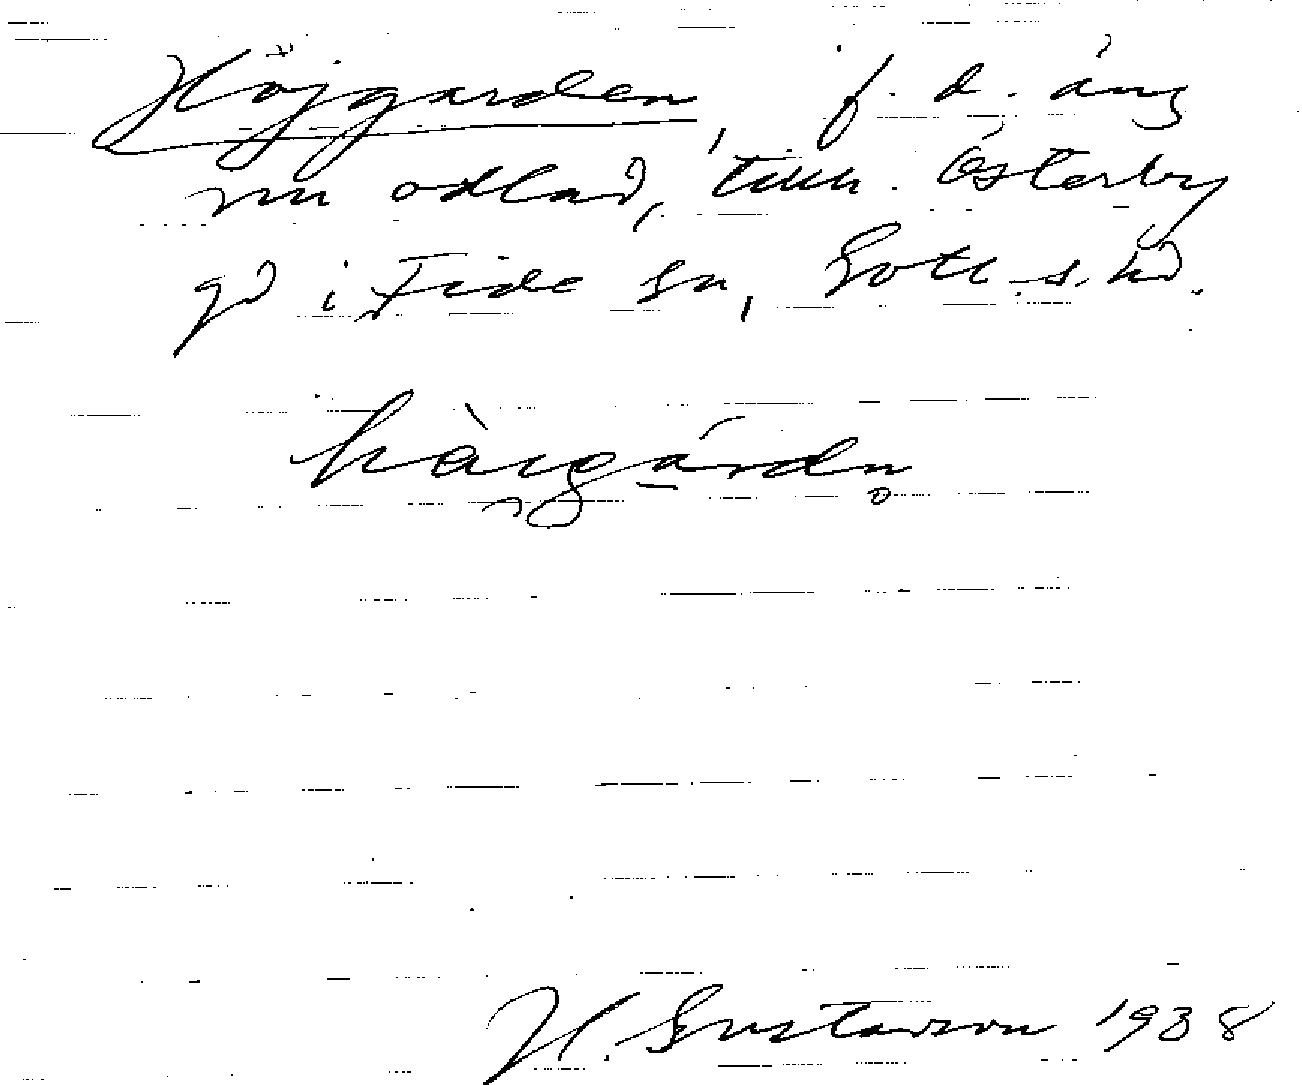 Höjgarden, f. d. äng
nu odlad, till. Österby
gd i Fide sn, Gotl. s. hd.
hàigárdn̥
H. Gustavson 1938